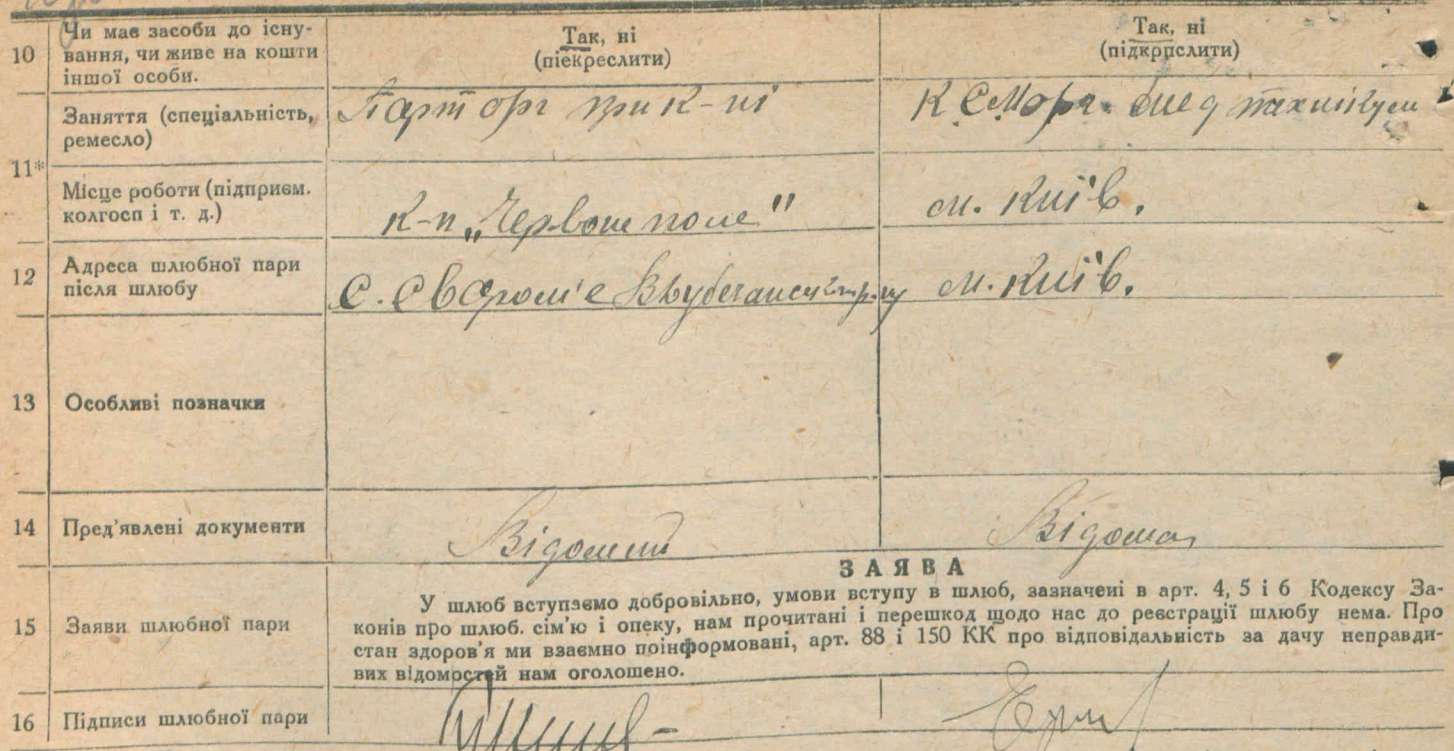 10 Чи має засоби до існу-
вання, чи живе на кошти
іншої особи.
Так, ні
(піекреслити)
Так, ні
(підкрпслити)
11* Заняття (спеціальність,
ремесло)
Парт орг при к-пі
мед технікум
Місце роботи (підприєм.
колгосп і т. д.)
к-п „Червоне поле"
м. Київ.
12 Адреса шлюбної пари
після шлюбу
с.
м. Київ.
13 Особливі позначки
14 Пред'явлені документи
Відомий
Відома
ЗАЯВА
15 Заяви шлюбної пари
У шлюб вступаємо добровільно, умови вступу в шлюб, зазначені в арт. 4, 5 і 6 Кодексу За-
конів про шлюб. сім'ю і опеку, нам прочитані і перешкод щодо нас до реєстрації шлюбу нема. Про
стан здоров'я ми взаємно поінформовані, арт. 88 і 150 КК про відповідальність за дачу неправди-
вих відомостей нам оголошено.
16 Підписи шлюбної пари